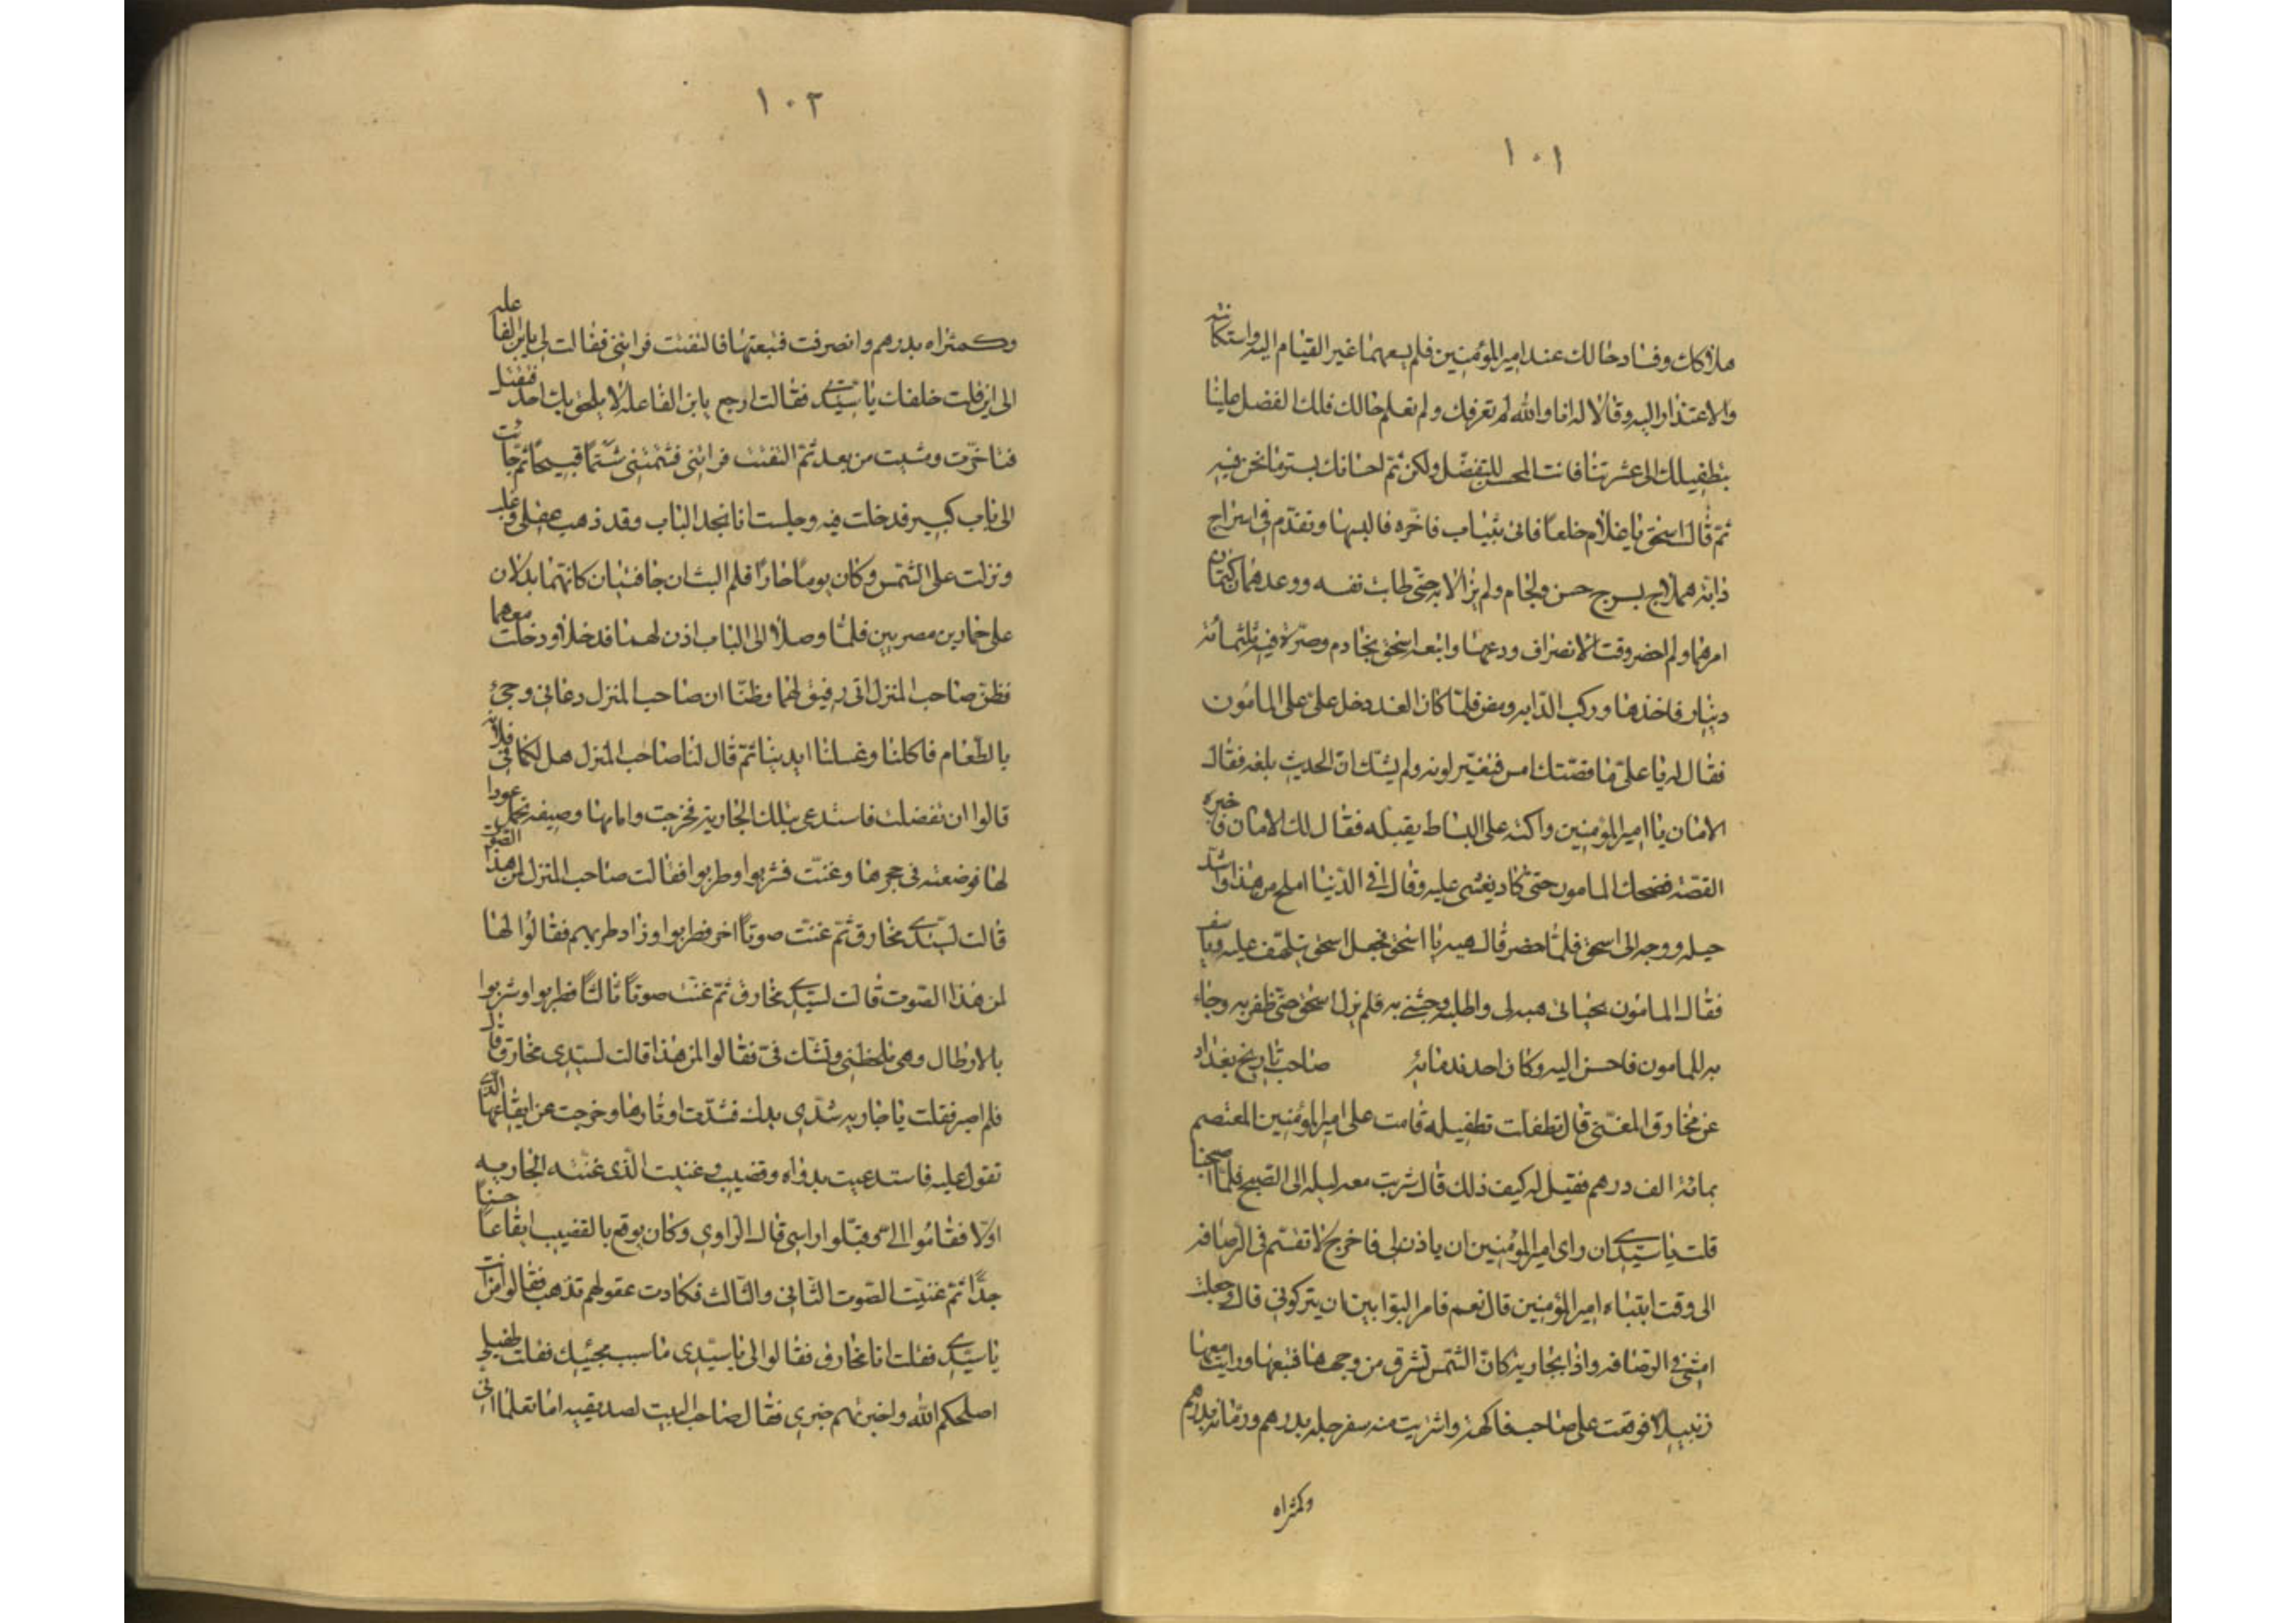 ١٠١
هذا كان وفساد حالك عند امير المؤمنين فلم يسعهما غير القيام اليه واستكانته
والاعتذار اليه وقالا له انا والله لم نعرفك ولم نعلم حالك فلك الفضل علينا
بتطفيلك الى عشرتنا فانت المحسن المتفضل ولكن تمم احسانك بستر ما نحن فيه
ثم قال اسحق يا غلام خلعا فاتى بثياب فاخره فالبسها وتقدم في اسراج
دابة هملاج بسرج حسن ولجام ولم يزالا به حتى طابت نفسه ووعدهما كتمان
امرهما ولما حضر وقت الانصراف ودعهما واتبعه اسحق بخادم وصرة فيها ثلثمائة
دينار فاخذها وركب الدابه ومضى فلما كان الغد دخل علي على المامون
فقال له يا علي ما قصتك امس فتغير لونه ولم يشك ان الحديث بلغه فقال
الامان يا امير المؤمنين واكب على البساط يقبله فقال لك الامان فاخبره
القصة فضحك المامون حتى كاد يغشى عليه وقال افي الدنيا املح من هذا واشد
حيله ووجه الى اسحق فلما حضر قال هيه يا اسحق فجعل اسحق يتلهف عليه وياسف
فقال المامون بحياتي هبه لي واطلبه وجئني به فلم يزل اسحق حتى ظفر به وجاء
به للمامون فاحسن اليه وكان احد ندمائه صاحب تاريخ بغداد
عن مخارق المغني قال تطفلت تطفيله قامت على امير المؤمنين المعتصم
بمائة الف درهم فقيل له كيف ذلك قال شربت معه ليله الى الصبح فلما اصبحنا
قلت يا سيدي ان راى امير المؤمنين ان ياذن لي فاخرج لاتنسم في الرصافه
الى وقت انتباه امير المؤمنين قال نعم فامر البوابين ان يتركوني قال وجعلت
امشي في الرصافه واذا بجاريه كان الشمس تشرق من وجهها فتبعتها ورايت معها
زنبيلا فوقفت على صاحب فاكهة واشتريت منه سفرجله بدرهم ورمانه بدرهم
وكمثراه
١٠٢
وكمثراه بدرهم وانصرفت فتبعتها فالتفتت فراتني فقالت لي يابن الفاعله
الى اين قلت خلفك يا سيدتي فقالت ارجع يابن الفاعله لا يلحق بك احد فتقتل
فتاخرت ومشيت من بعد ثم التفتت فراتني فشتمتني شتما قبيحا ثم جاءت
الى باب كبير فدخلت فيه وجلست انا بحد الباب وقد ذهب عقلي وعليه
ونزلت علي الشمس وكان يوما حارا فلم البث ان جا فتيان كانهما بدران
على حمارين مصريين فلما وصلا الى الباب اذن لهما فدخلا ودخلت معهما
فظن صاحب المنزل اني رفيق لهما وظنا ان صاحب المنزل دعاني وجئ
بالطعام فاكلنا وغسلنا ايدينا ثم قال لنا صاحب المنزل هل لكما في فلانه
قالوا ان تفضلت فاستدعى بتلك الجارية فخرجت وامامها وصيفه تحمل عودا
لها فوضعته في حجرها وغنت فشربوا وطربوا فقالت صاحب المنزل لمن هذا الصوت
قالت لسيدي مخارق ثم غنت صوتا اخر فطربوا وزاد طربهم فقالوا لها
لمن هذا الصوت قالت لسيدي مخارق ثم غنت صوتا ثالثا فطربوا وشربوا
بالارطال وهي تلحظني وتشك في فقالوا لمن هذا قالت لسيدي مخارق قال
فلم اصبر فقلت يا جاريه شدي يدك فشدت اوتارها وخرجت عن ايقاعها الذي
تقول عليه فاستدعيت بدواه وقضيب وغنيت الذي غنته الجاريه
اولا فقاموا الي وقبلوا راسي قال الراوي وكان يوقع بالقضيب ايقاعا حسنا
جدا ثم غنيت الصوت الثاني والثالث فكادت عقولهم تذهب فقالوا من انت
يا سيدي فقلت انا مخارق فقالوا لي يا سيدي ما سبب مجيئك فقلت طفيلي
اصلحكم الله واخبرتهم خبري فقال صاحب البيت لصديقيه اما تعلما اني